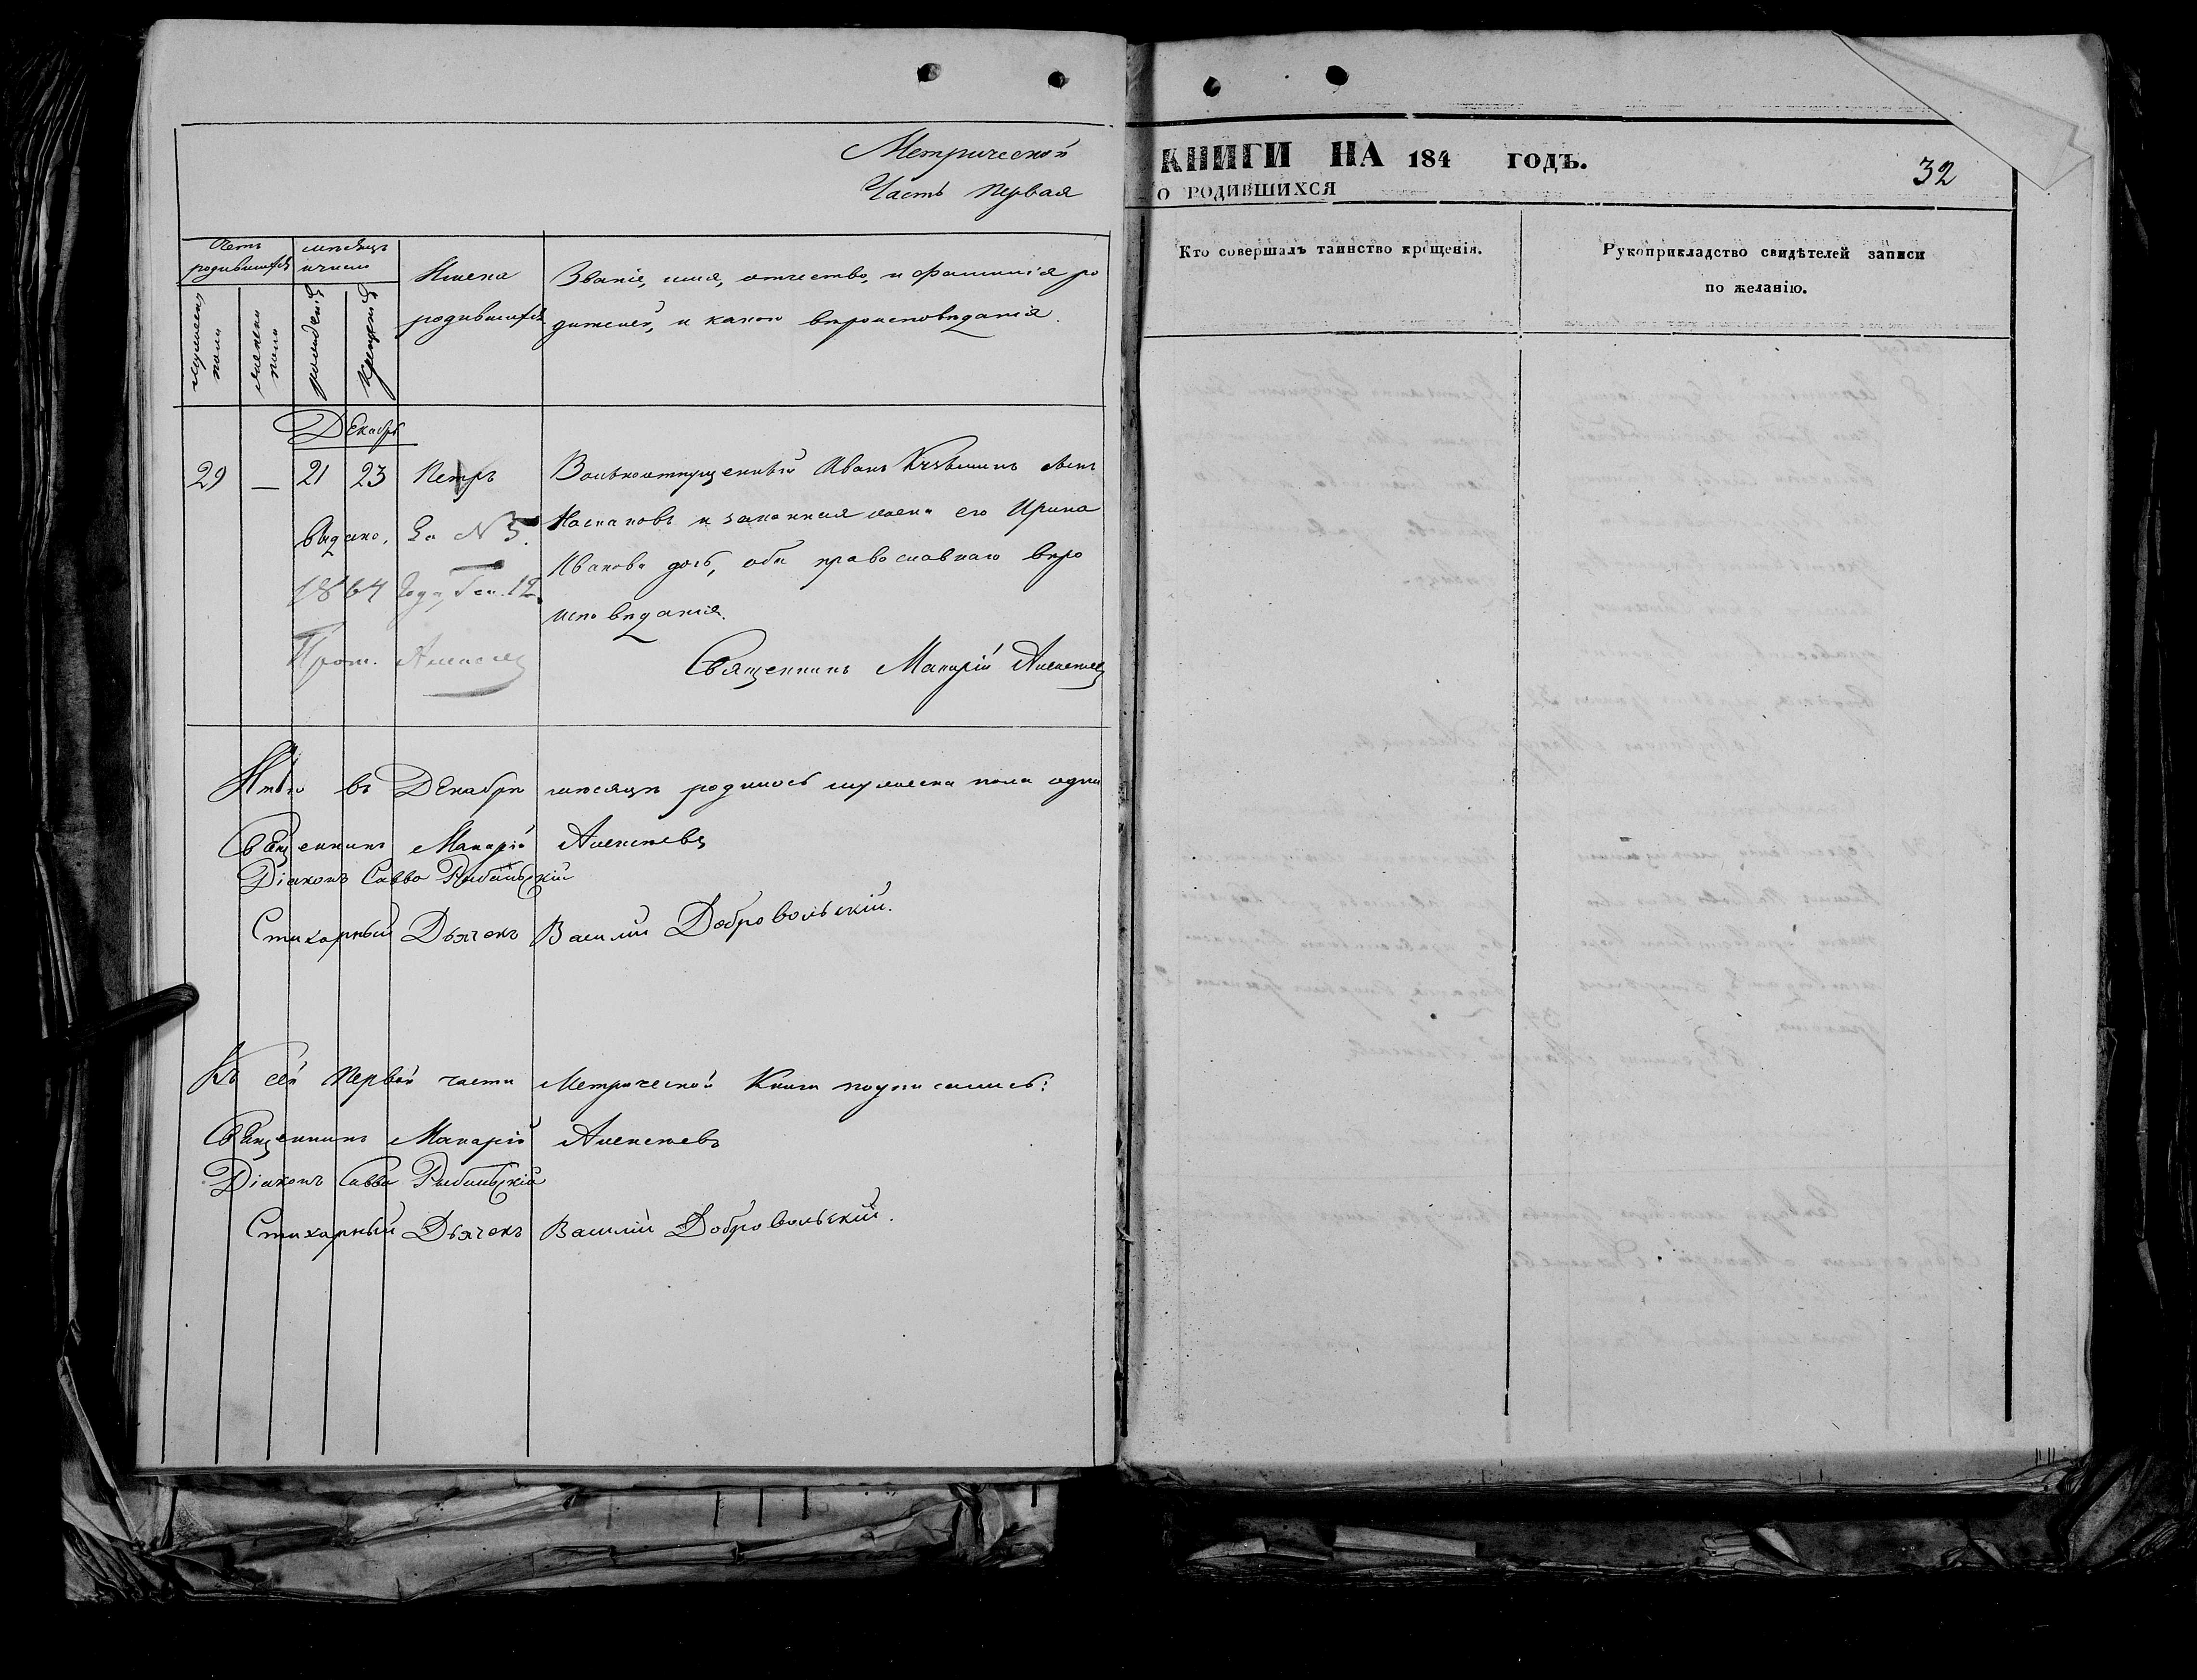 Метрической
Часть первая
Счетъ родившихся
мѣсяцъ и число
мужеска пола
женска пола
рожденія
крещенія
Имена родившихся
Званіе, имя, отчество, и фамилія ро
дителей, и какого вѣроисповѣданія.
Декабрь
29 — 21 23 Петръ Вольноотпущенный Иванъ
и законная жена его Ирина
Иванова дочь, оба православнаго вѣро
исповѣданія.
Священникъ Макарій Алексѣевъ
выдано. За № 5.
1864 года, Ген. 12.
Прот. Алексѣевъ
Итого въ Декабрѣ мѣсяцѣ родилось мужеска пола одинъ
Священникъ Макарій Алексѣевъ
Діаконъ Савва
Стихарный Дьячекъ Василій Добровольскій.
Къ сей первой части Метрической Книги подписались:
Священникъ Макарій Алексѣевъ
Діаконъ Савва
Стихарный Дьячекъ Василій Добровольскій.
КНИГИ НА 184 ГОДЪ.
32
О РОДИВШИХСЯ
Кто совершалъ таинство крещенія.
Рукоприкладство свидѣтелей записи
по желанію.